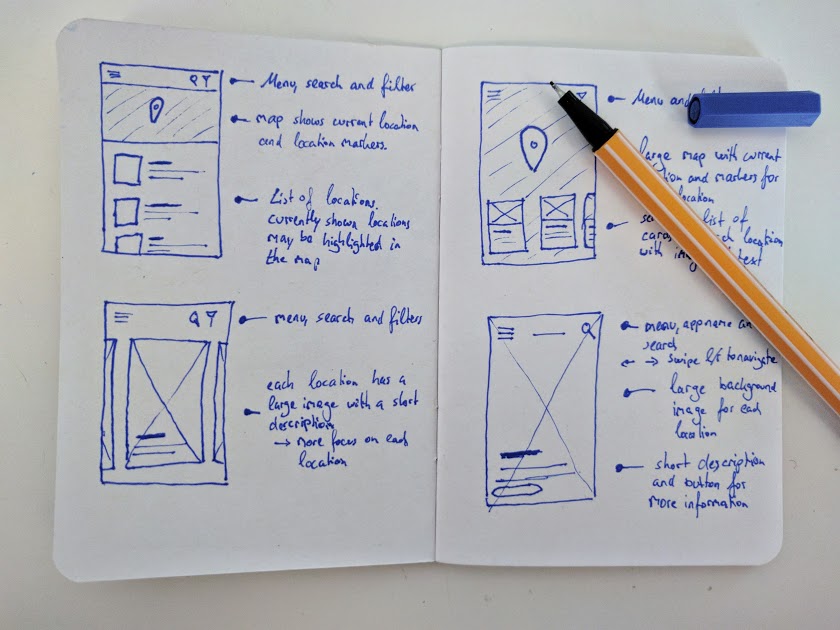 Menu, search and filter
map shows current location
and location markers.
List of locations.
currently shown locations
may be highlighted in
the map
menu, search and filters
each location has a
large image with a short
description
→ more focus on each
location
Menu and
large map with current
and markers for
location
list of
location
with text
menu, app name
search
← → swipe l/r to navigate
large background
image for each
location
short description
and button for
more information